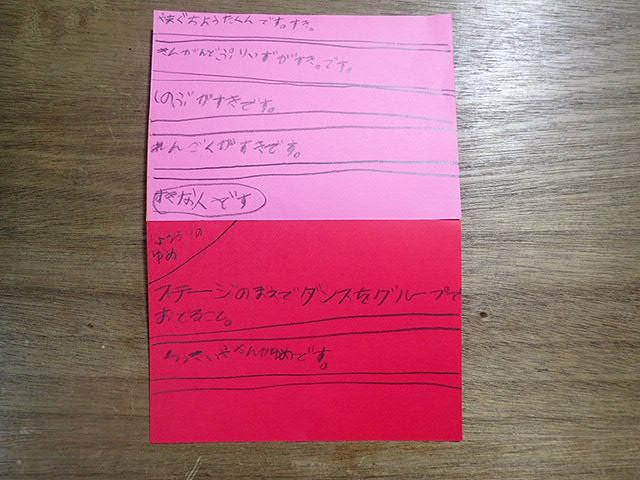 やまぐちようたくんです。すき。
きんがんでぷりいずがすき。です。
しのぶがすきです。
れんごくがすきです。
すきな人です
しょうらいの
ゆめ
ステージのまえでダンスをグループで
おどること。
ゆめです。